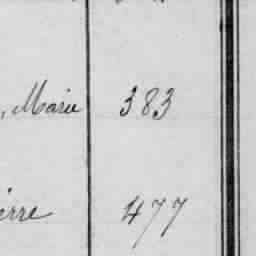 , Marie 383
ierre 477